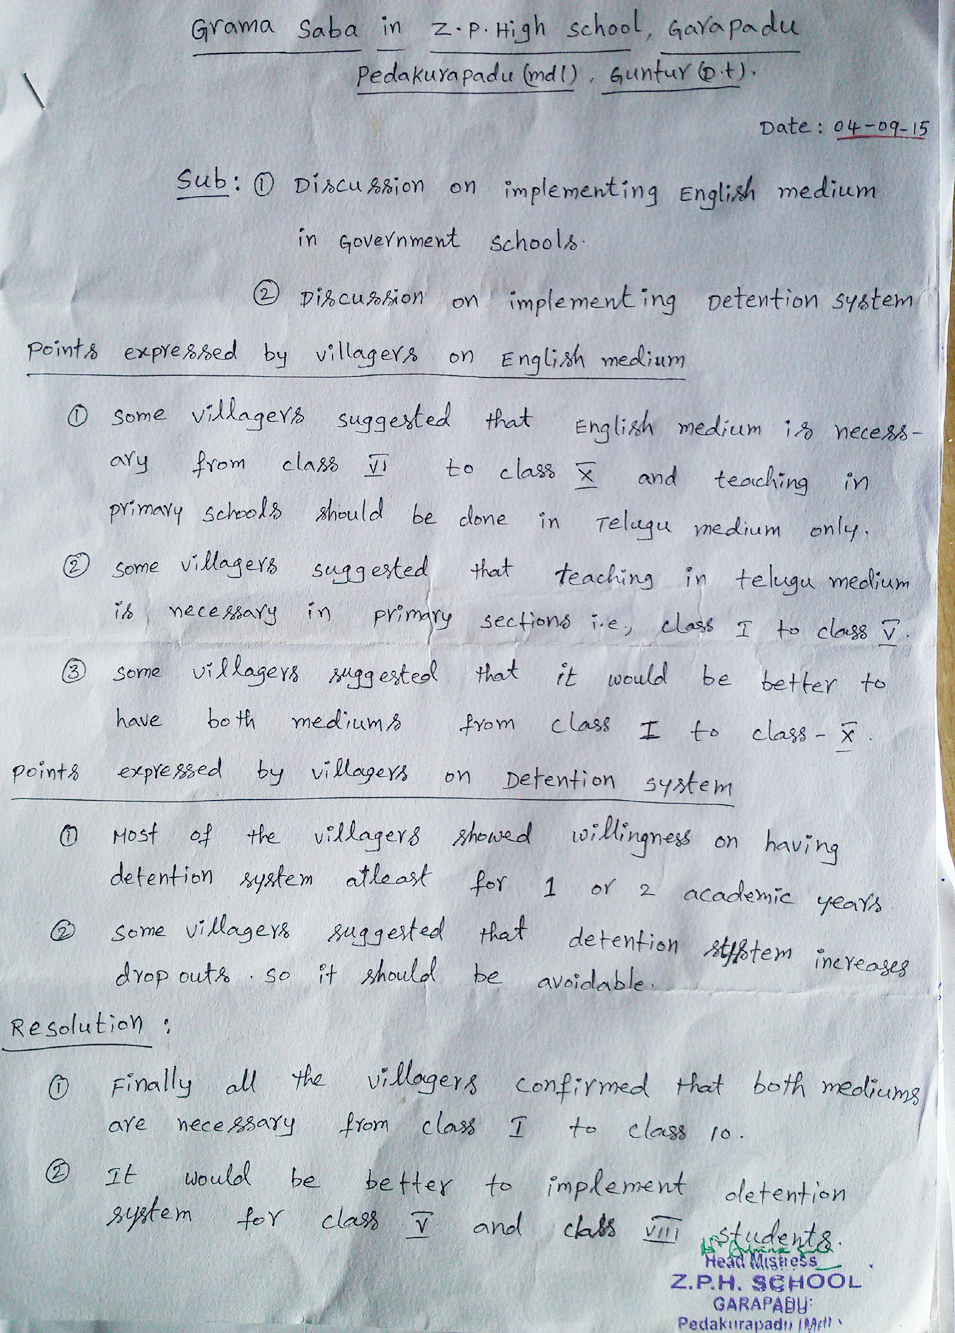 Grama Saba in Z.P. High school, Garapadu
Pedakurapadu (mdl), Guntur (D.t).
Date : 04-09-15
Sub: ① Discussion on implementing English medium
in Government schools.
② Discussion on implementing Detention system
Points expressed by villagers on English medium
① some villagers suggested that English medium is necess-
ary from class VI to class X and teaching in
primary schools should be done in Telugu medium only.
② some villagers suggested that teaching in telugu medium
is necessary in primary sections i.e., class I to class V.
③ some villagers suggested that it would be better to
have both mediums from class I to class - X.
Points expressed by villagers on Detention system
① Most of the villagers showed willingness on having
detention system atleast for 1 or 2 academic years.
② some villagers suggested that detention system increases
drop outs. so it should be avoidable.
Resolution :
① Finally all the villagers confirmed that both mediums
are necessary from class I to class 10.
② It would be better to implement detention
system for class V and class VIII students.
Head Mistress
Z.P.H. SCHOOL
GARAPADU
Pedakurapadu (Mdl)